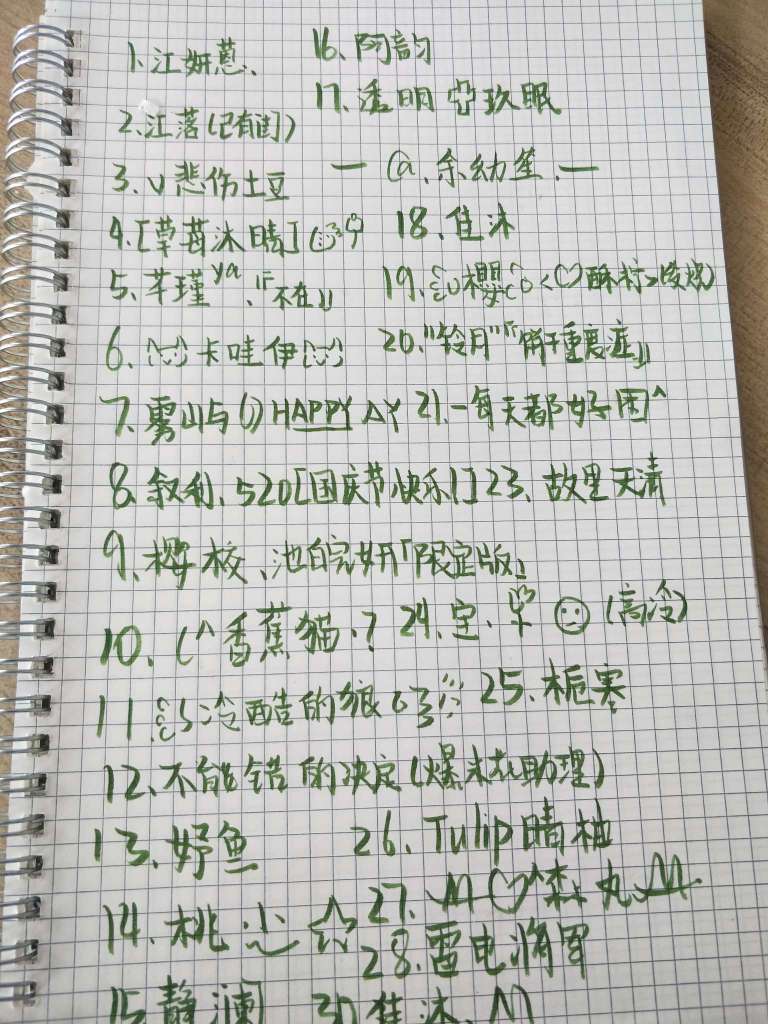 1. 江妍蒽、
16. 阿韵
2. 江落(已有主)
17. 透明 玖眠
3. υ悲伤土豆
— @、余幼笙、—
4. [草莓沐晴]
18. 佳沐
5. 芊瑾ya、『不在』
19. 樱
6. 卡哇伊
20. "铃月"『重度症』
7. 雾山与() HAPPY ΔY
21. -每天都好困^
8. 叙利、520[国庆节快乐!]
23. 故里天清
9. 樱校、池皖妍「限定版」
10. (^香蕉猫·?
24. 宝· (高冷)
11 冷酷的狼
25. 栀寒
12、不能错的决定(爆米花助理)
13、妤鱼
26. Tulip晴柚
14、桃 ☆
27. ♡^森丸
28. 雷电将军
15 静澜
30 佳沐、